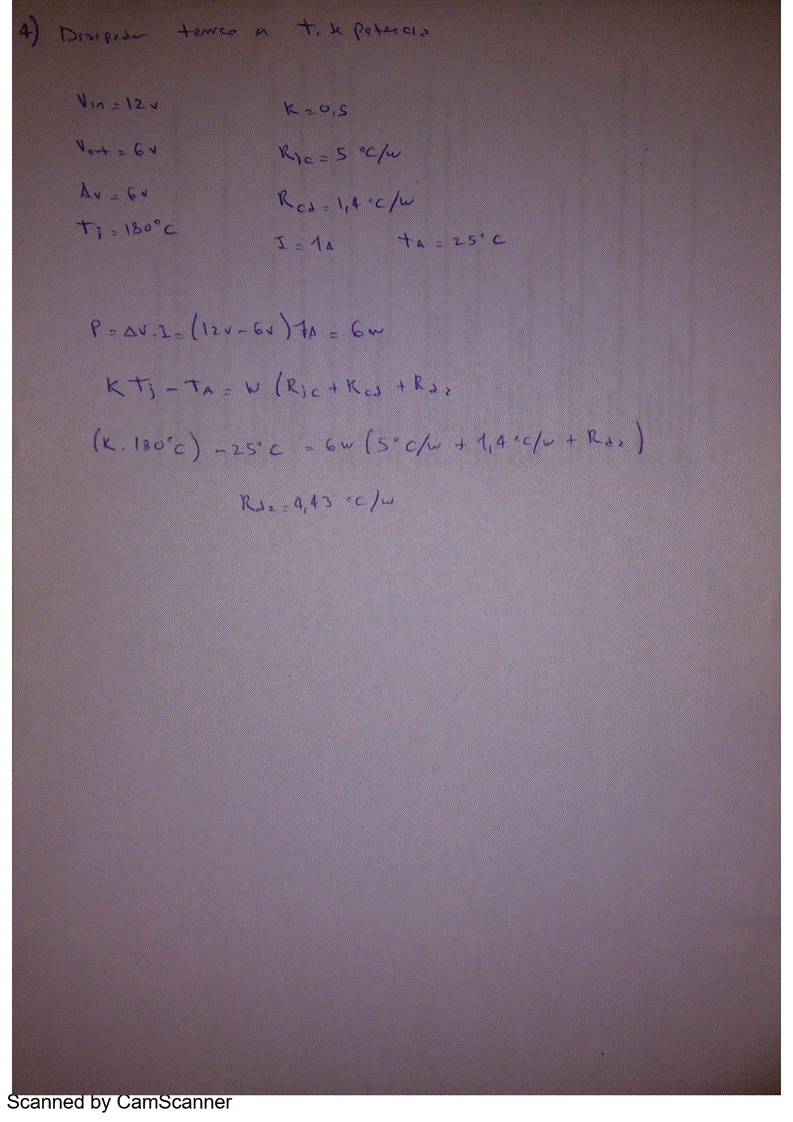 4) Disipador termico en T. de potencia
Vin = 12v K = 0,5
Vout = 6v Rjc = 5 °C/w
Δv = 6v Rcd = 1,4 °C/w
Tj = 180°C I = 1A tA = 25°C
P = ΔV.I = (12v - 6v) 1A = 6w
K Tj - TA = W (Rjc + Rcd + Rdz
(K. 180°C) - 25°C = 6w (5°C/w + 1,4°C/w + Rdz)
Rdz = 4,43 °C/w
Scanned by CamScanner